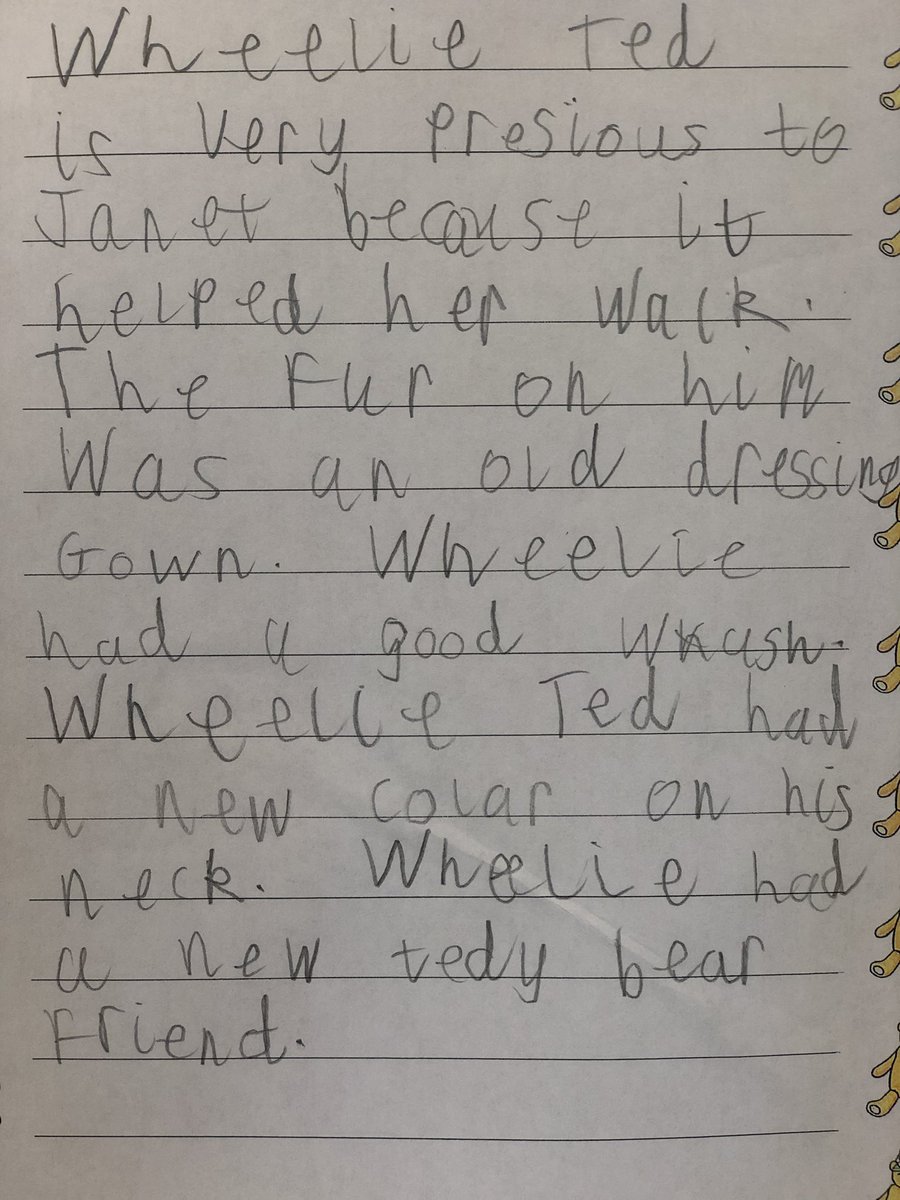 Wheelie Ted
is very presious to
Janet because it
helped her walk.
The Fur on him
Was an old dressing
Gown. Wheelie
had a good whash.
Wheelie Ted had
a new colar on his
neck. Wheelie had
a new tedy bear
Friend.